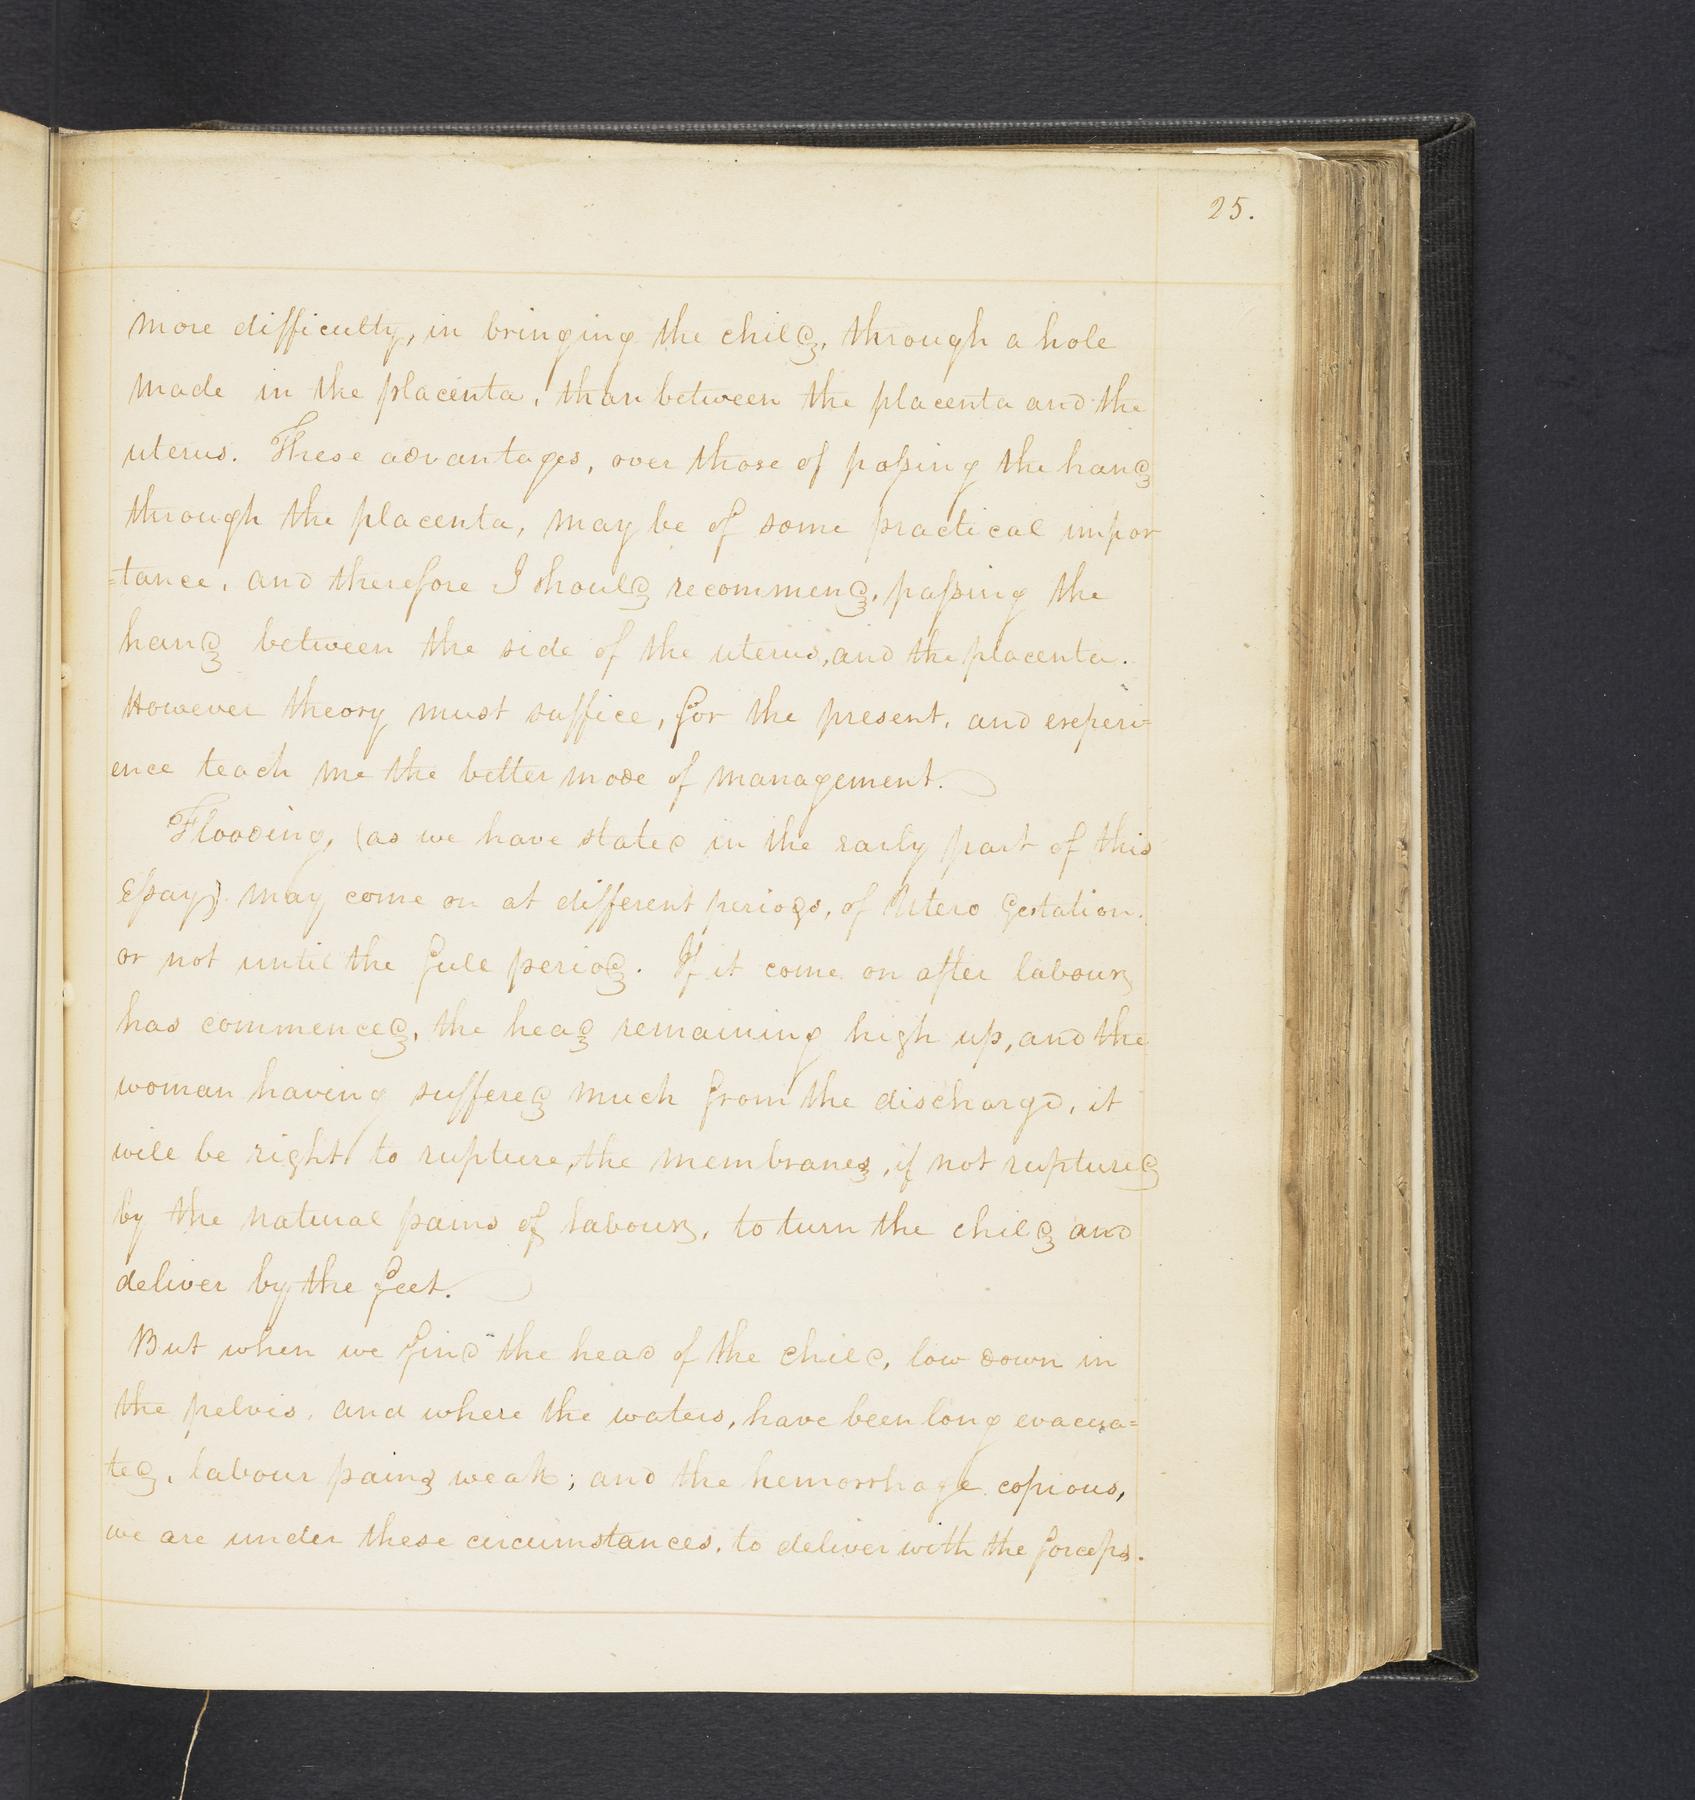 25.
more difficulty, in bringing the child, through a hole
made in the placenta, than between the placenta and the
uterus. These advantages, over those of paſsing the hand
through the placenta, may be of some practical impor
=tance, and therefore I should recommend, paſsing the
hand between the side of the uterus, and the placenta.
However theory must suffice, for the present, and experi-
ence teach me the better mode of management.
Flooding, (as we have stated in the early part of this
Eſsay) may come on at different periods, of Utero Gestation.
or not until the full period. If it come on after labour
has commenced, the head remaining high up, and the
woman having suffered much from the discharge, it
will be right to rupture, the membranes, if not ruptured
by the natural pains of labour, to turn the child and
deliver by the feet.
But when we find the head of the child, low down in
the pelvis, and where the waters, have been long evacua=
ted, labour pains weak; and the hemorrhage copious,
we are under these circumstances, to deliver with the forceps.